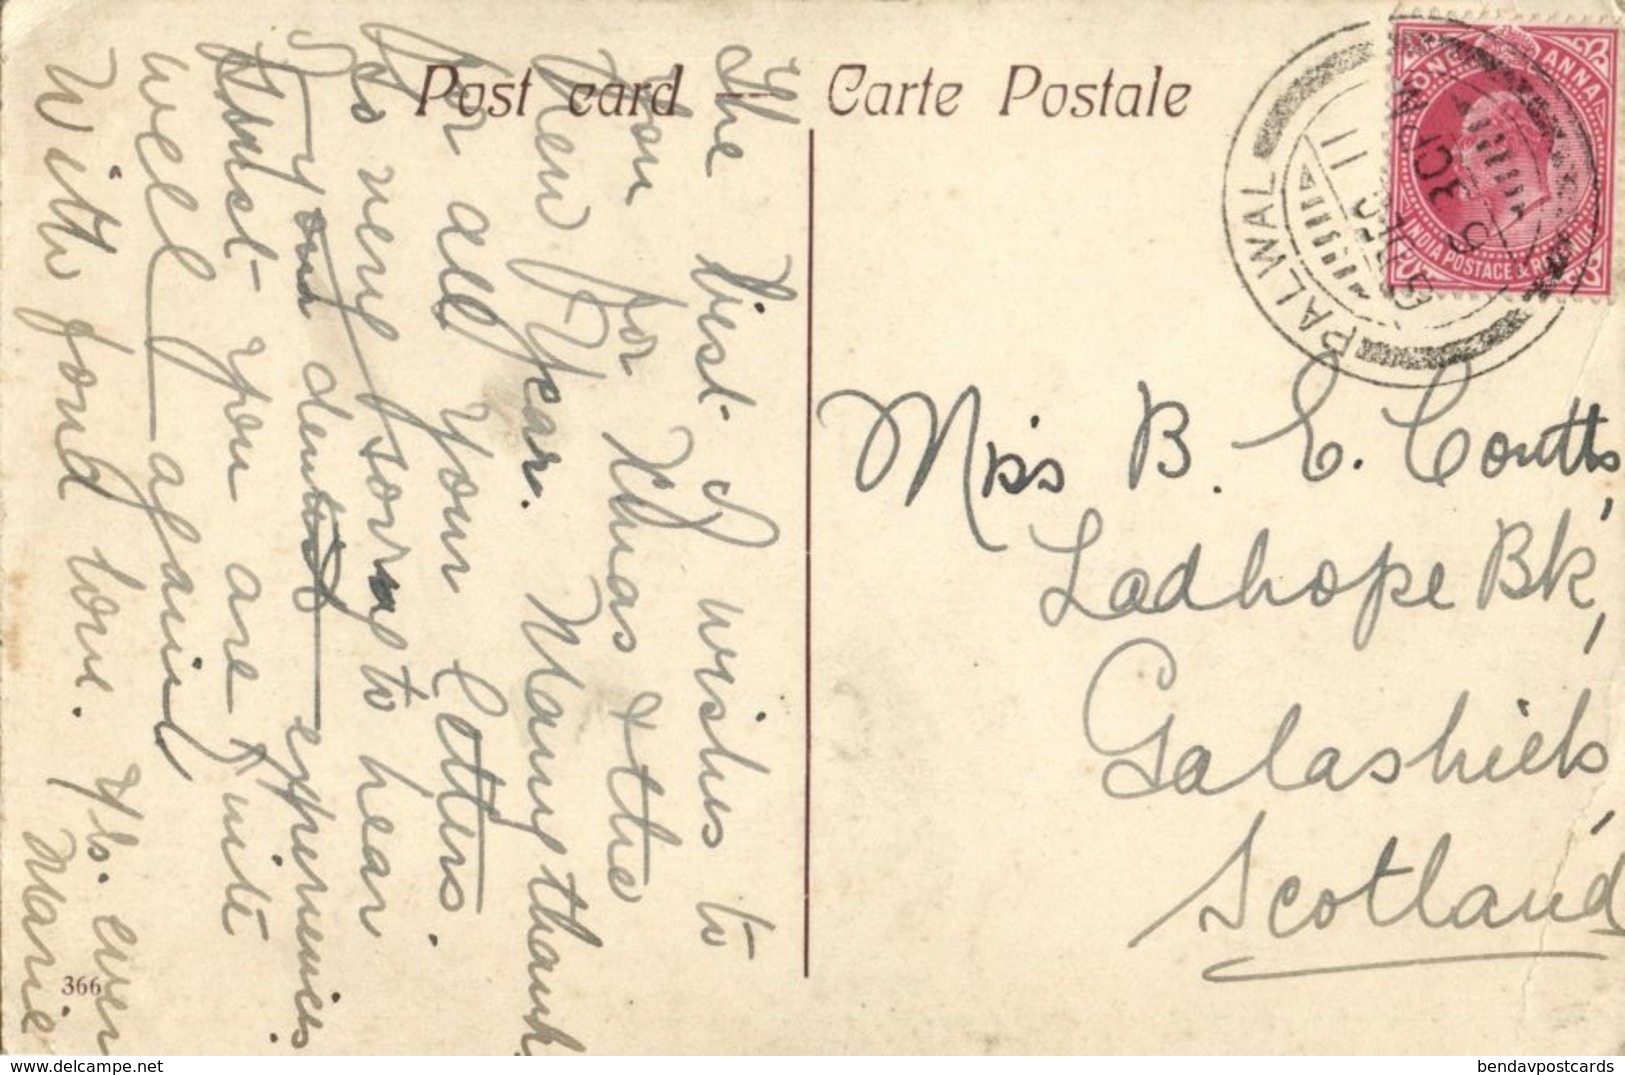 Post card — Carte Postale
ONE ANNA
INDIA POSTAGE & REVENUE
PALWAL
Miss B. E. Coutts,
Ladhope Bk,
Galashiels,
Scotland
The best I wishes to
you for Xmas & the
New Year. Many thanks
for all your letters.
Is very sorry to hear
of your dentist experiences
trust you are quite
well again
With fond love. Yrs. ever
Marie
366
bendavpostcards